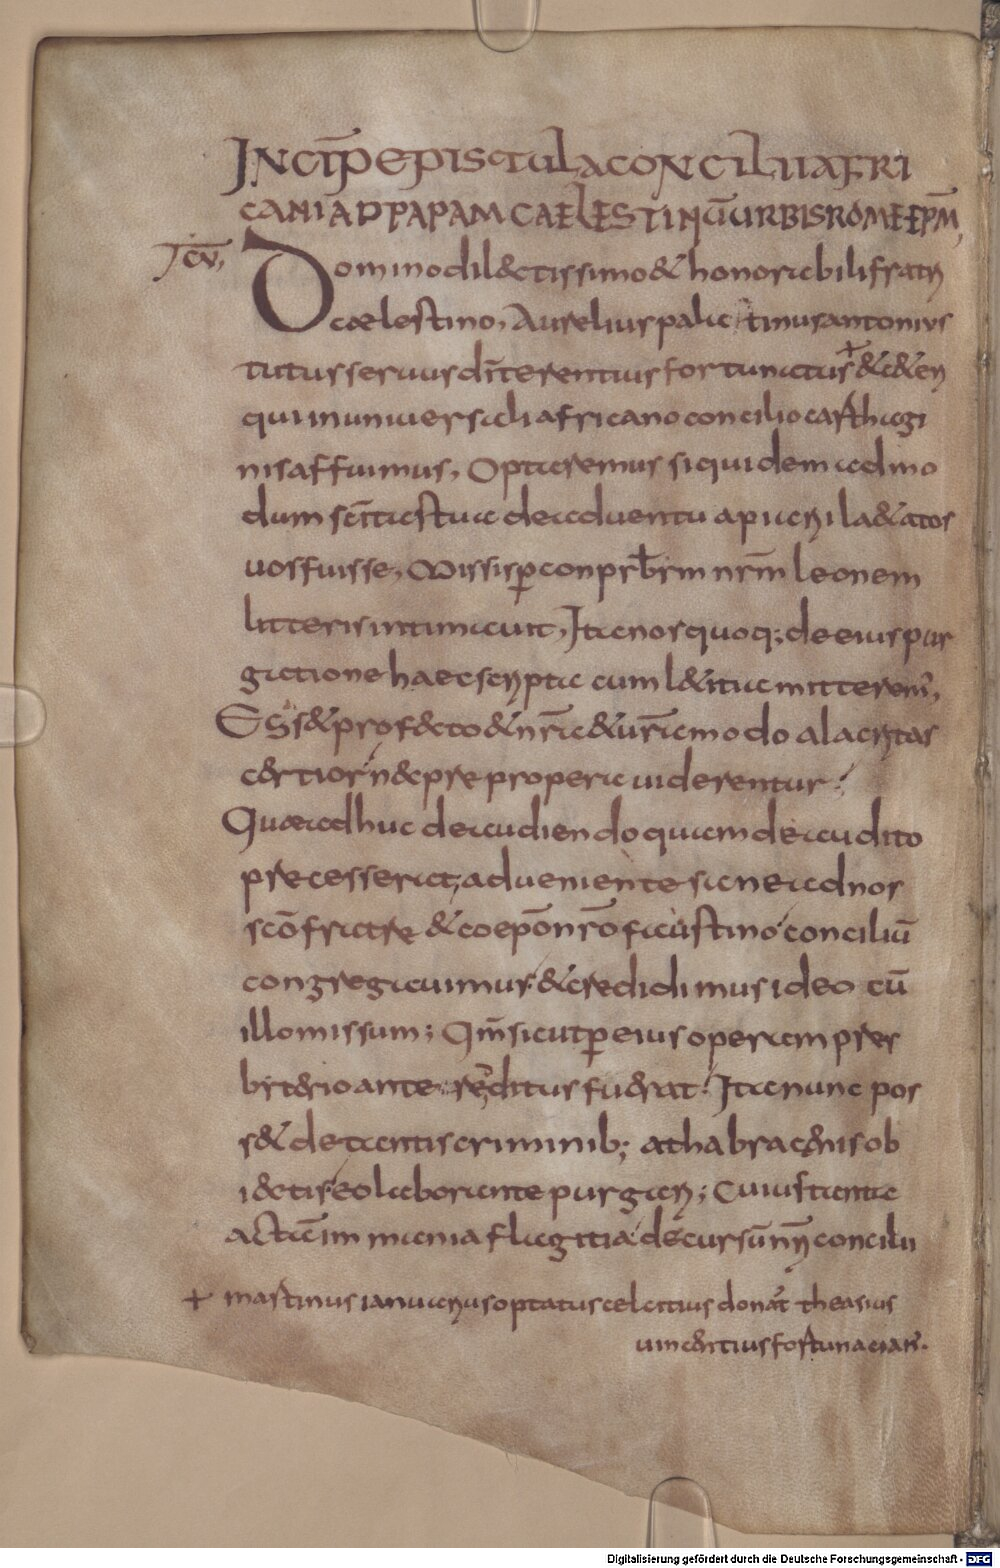 INCIP̄ EPISTULA CONCILII AFRI
CANI AD PAPAM CAELESTINŪ URBIS ROME EPM̄,
Dominodil&tissimo& honorabilifratri
caelestino, Aureliuspalatinusantonius
tutusseruusdīterentiusfortunatus+&c&eri
quiinuniuersaliafricanoconciliocarthagi
nisaffuimus, Optaremus siquidem admo
dum scītāestuae deaduentu apiarii la&atos
uosfuisse, Missisp̱conprb̄rm nr̄m leonem
litterisintimauit, Itanosquoq; deeiuspur
gationehaecscripta cuml&itiamitterem̄,
Ess&prof&to&nr̄a&ur̄amodo alacritas
certior n&prepropera uiderentur:
Quaeadhuc deaudiendoquamdeaudito
precesserat, adueniente sane adnos
scōfratre &coepōnr̄ofaustino conciliū
congregauimus &credidimusideo cū
illomissum; Qm̄sicutp̱eiusoperam pres
biterioante redditus fuerat. Itanunc pos
s& detantiscriminib; athabracenisob
iectis eolaborantepurgari; Cuiustantae
actāeimmaniaflagitia decursūnr̄iconcilii
+ martinusianuariusoptatuscelticius donat theasius
uincentiusfortunacian.